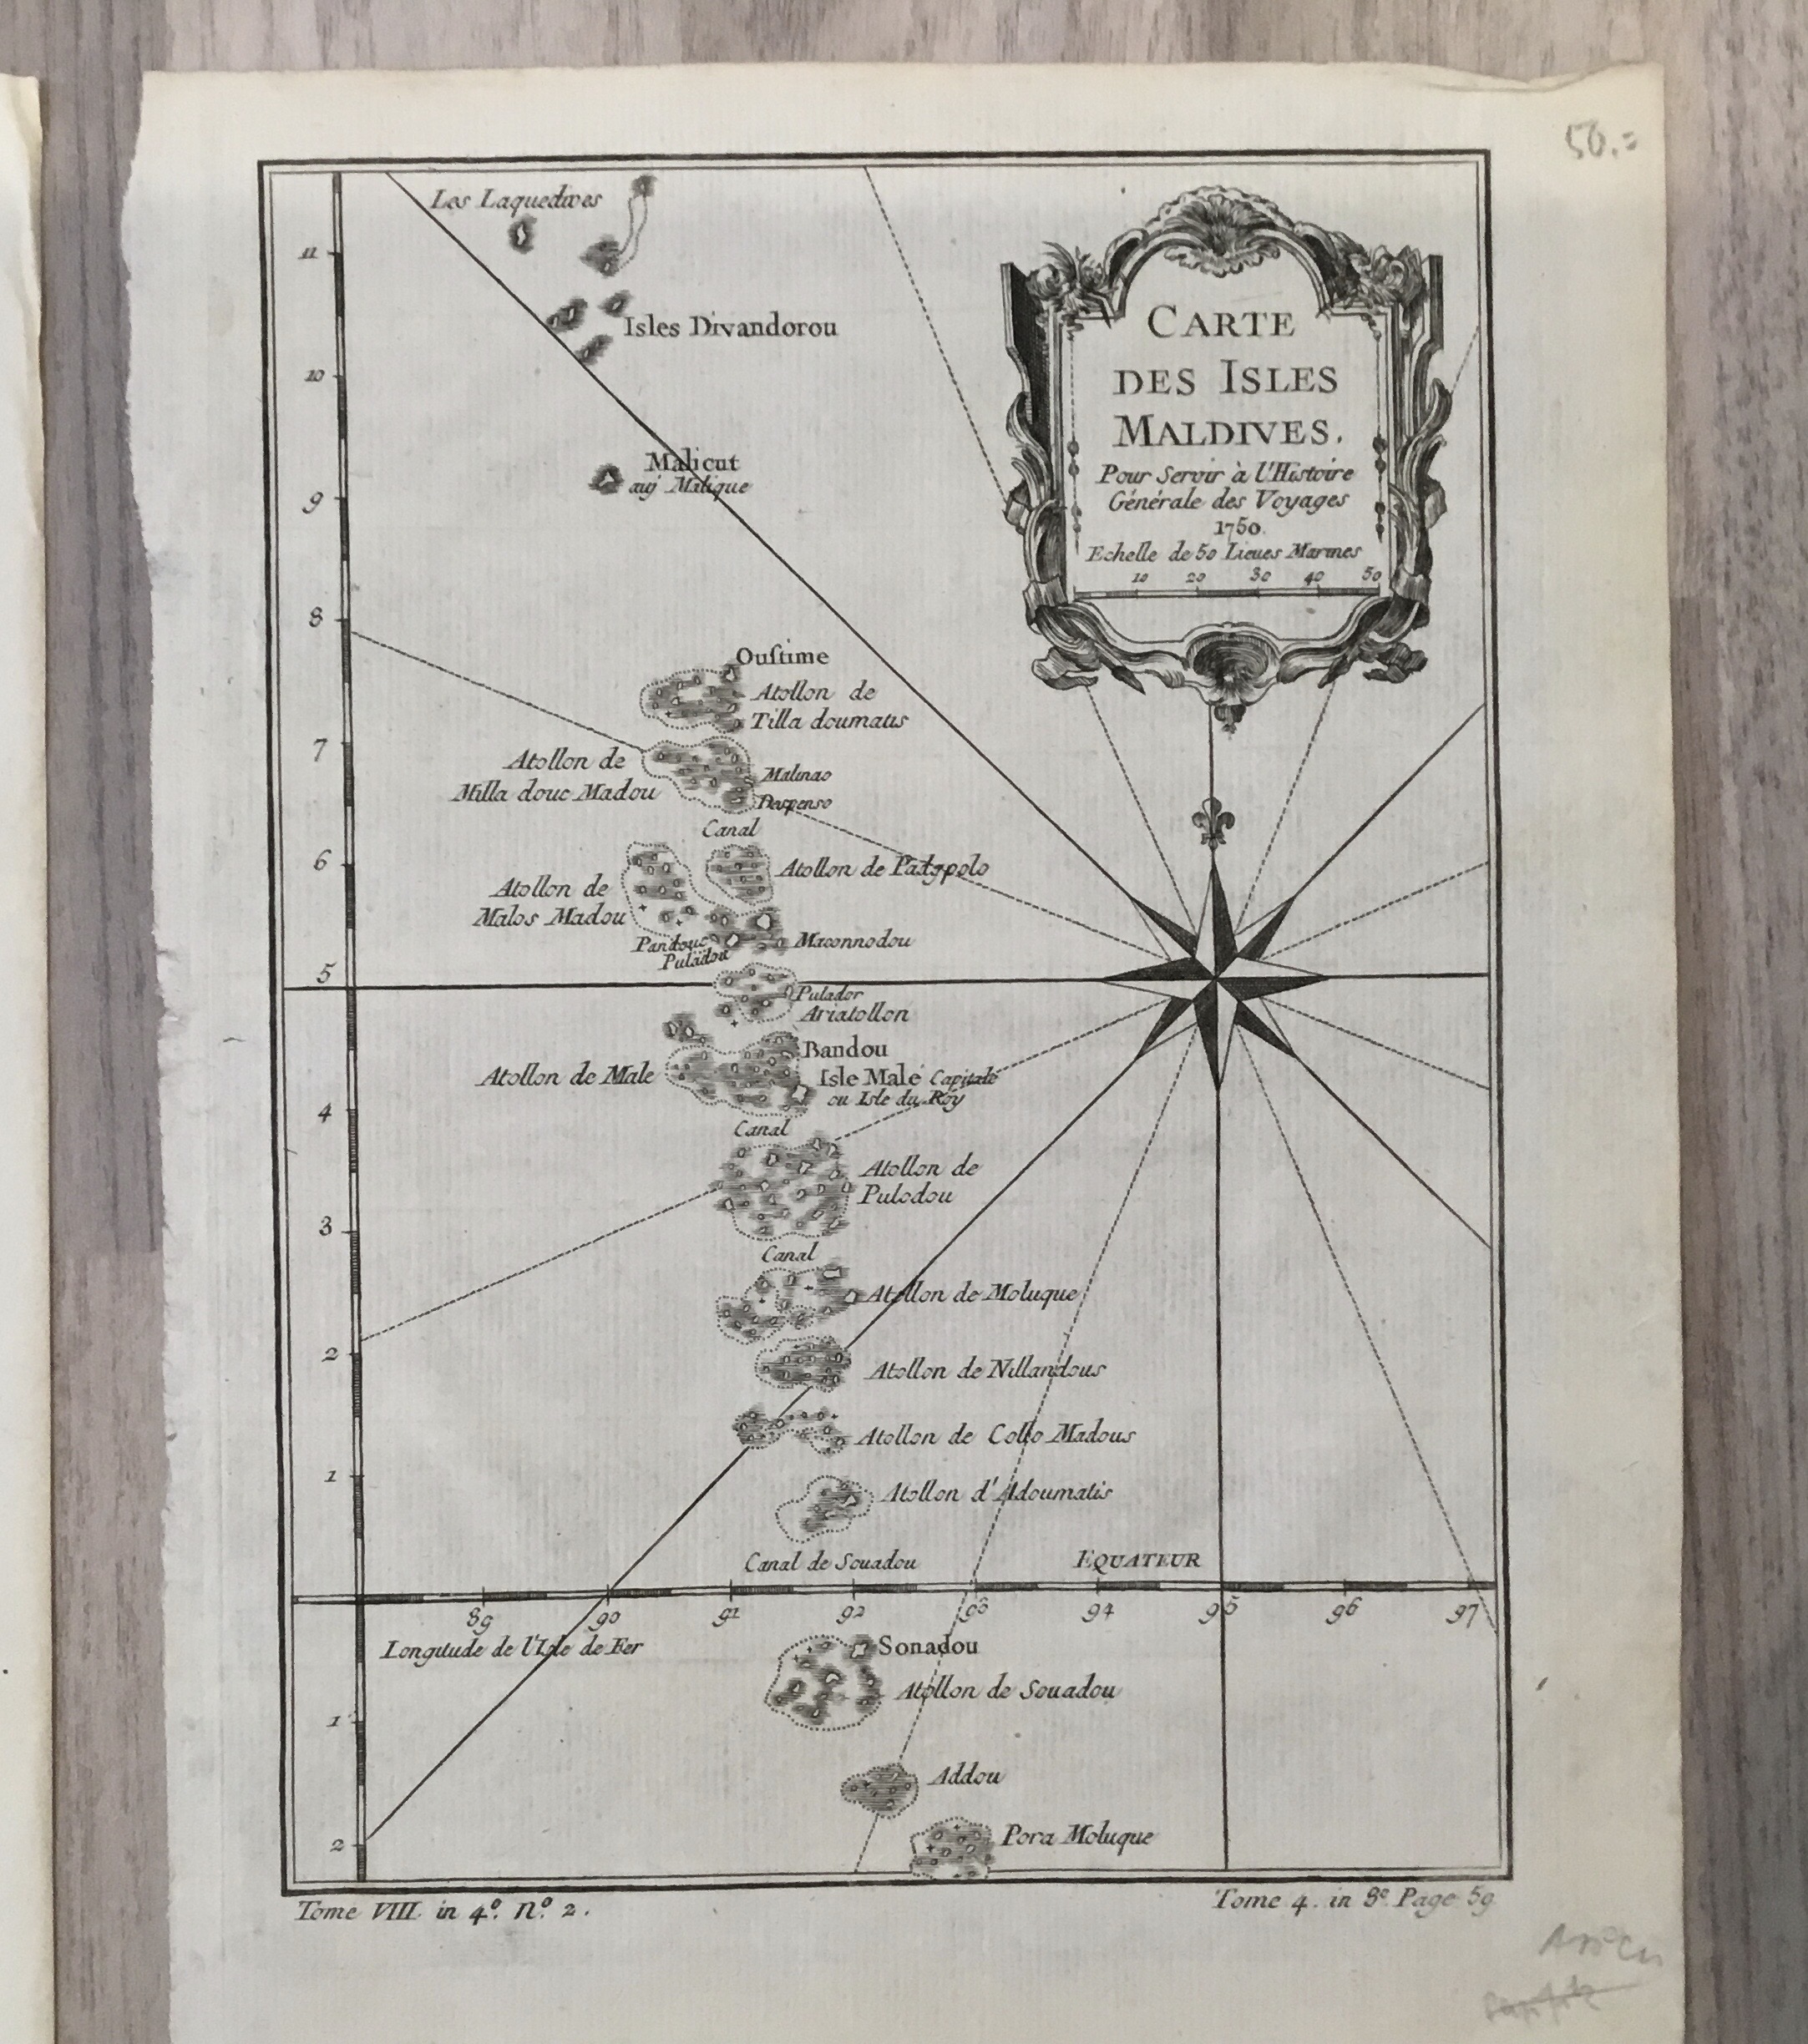 50.=
Les Laquedives
11
Isles Divandorou
10
Malicut
auj Malique
9
CARTE
DES ISLES
MALDIVES.
Pour Servir à l'Histoire
Générale des Voyages
1750.
Echelle de 50 Lieues Marines
10 20 30 40 50
8
Ouſtime
Atollon de
Tilla doumatis
7
Atollon de
Milla douc Madou
Malinao
Despenso
Canal
6
Atollon de Padypolo
Atollon de
Malos Madou
Pandouc
Puladou
Maconnodou
5
Pulador
Ariatollon
Bandou
Atollon de Male
Isle Malé Capitale
ou Isle du Roy
4
Canal
Atollon de
Pulodou
3
Canal
Atollon de Moluque
2
Atollon de Nillandous
Atollon de Collo Madous
1
Atollon d'Adoumatis
Canal de Souadou
EQUATEUR
89 90 91 92 93 94 95 96 97
Longitude de l'Isle de Fer
Sonadou
Atollon de Souadou
1
Addou
2
Pora Moluque
Tome VIII. in 4º. Nº. 2.
Tome 4. in 8º. Page 59